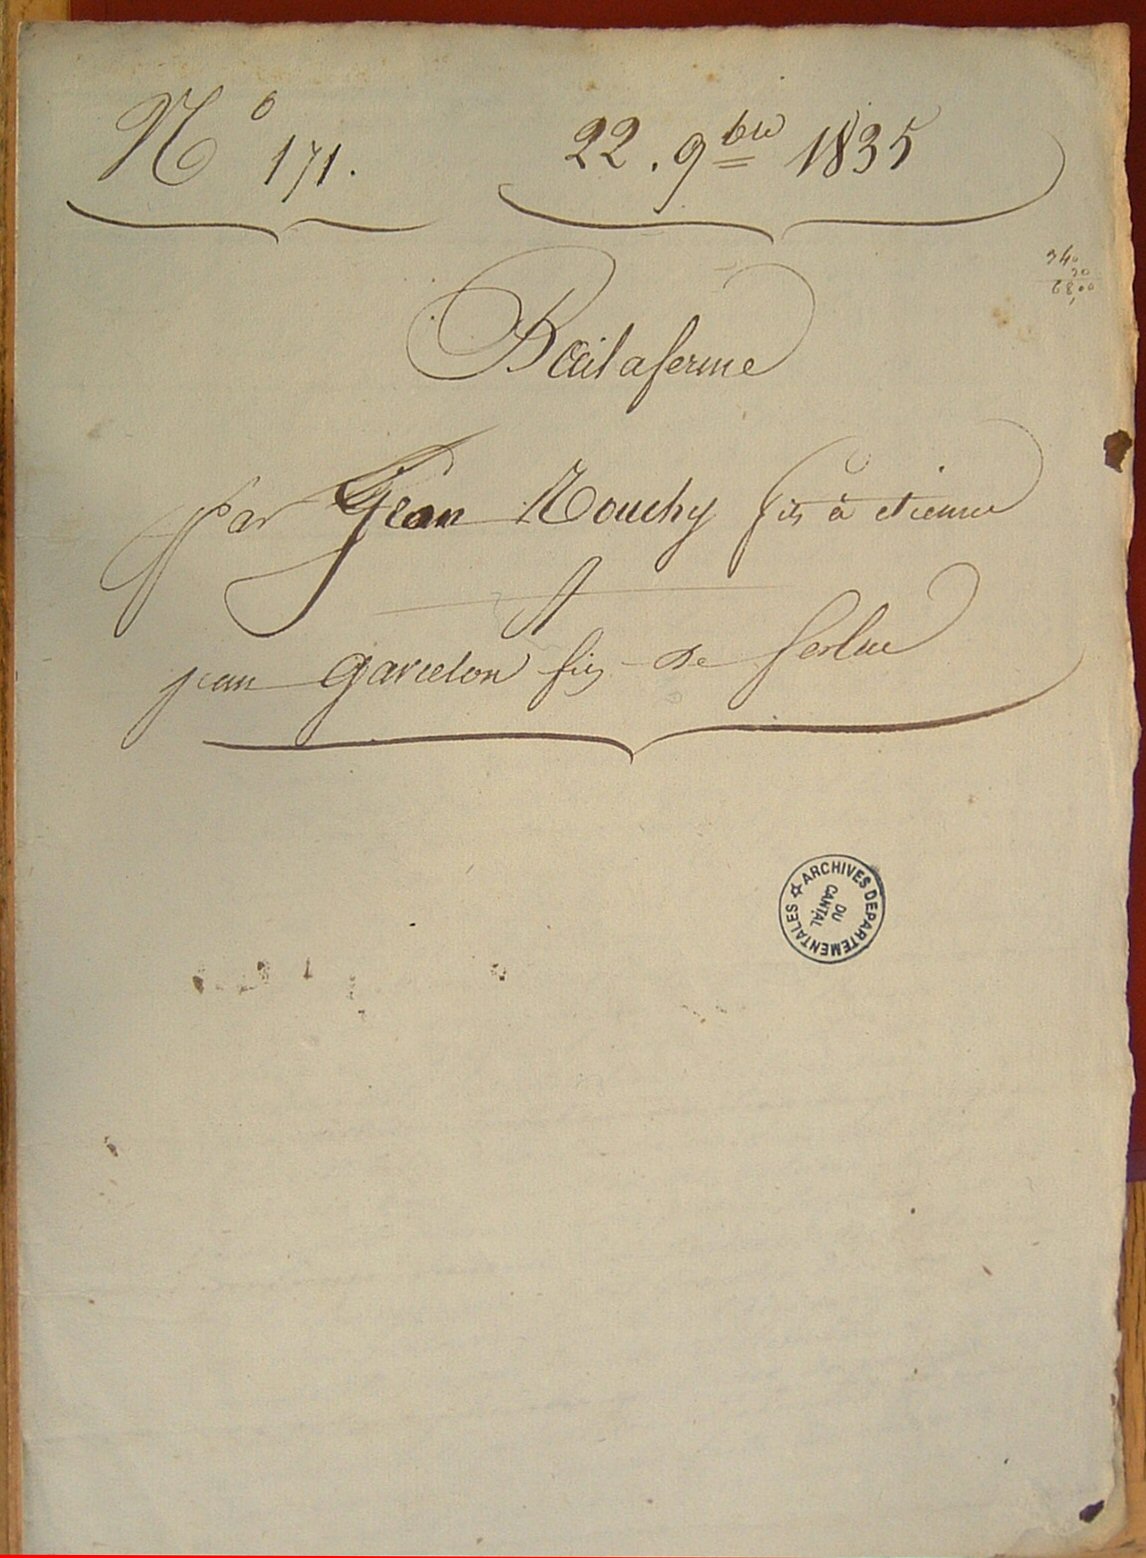 N° 171.
22. 9bre 1835
340
20
68,00
Bail a ferme
par Jean Rouchy fils à etienne
A
jean garcelon fils de
ARCHIVES DEPARTEMENTALES
DU
CANTAL